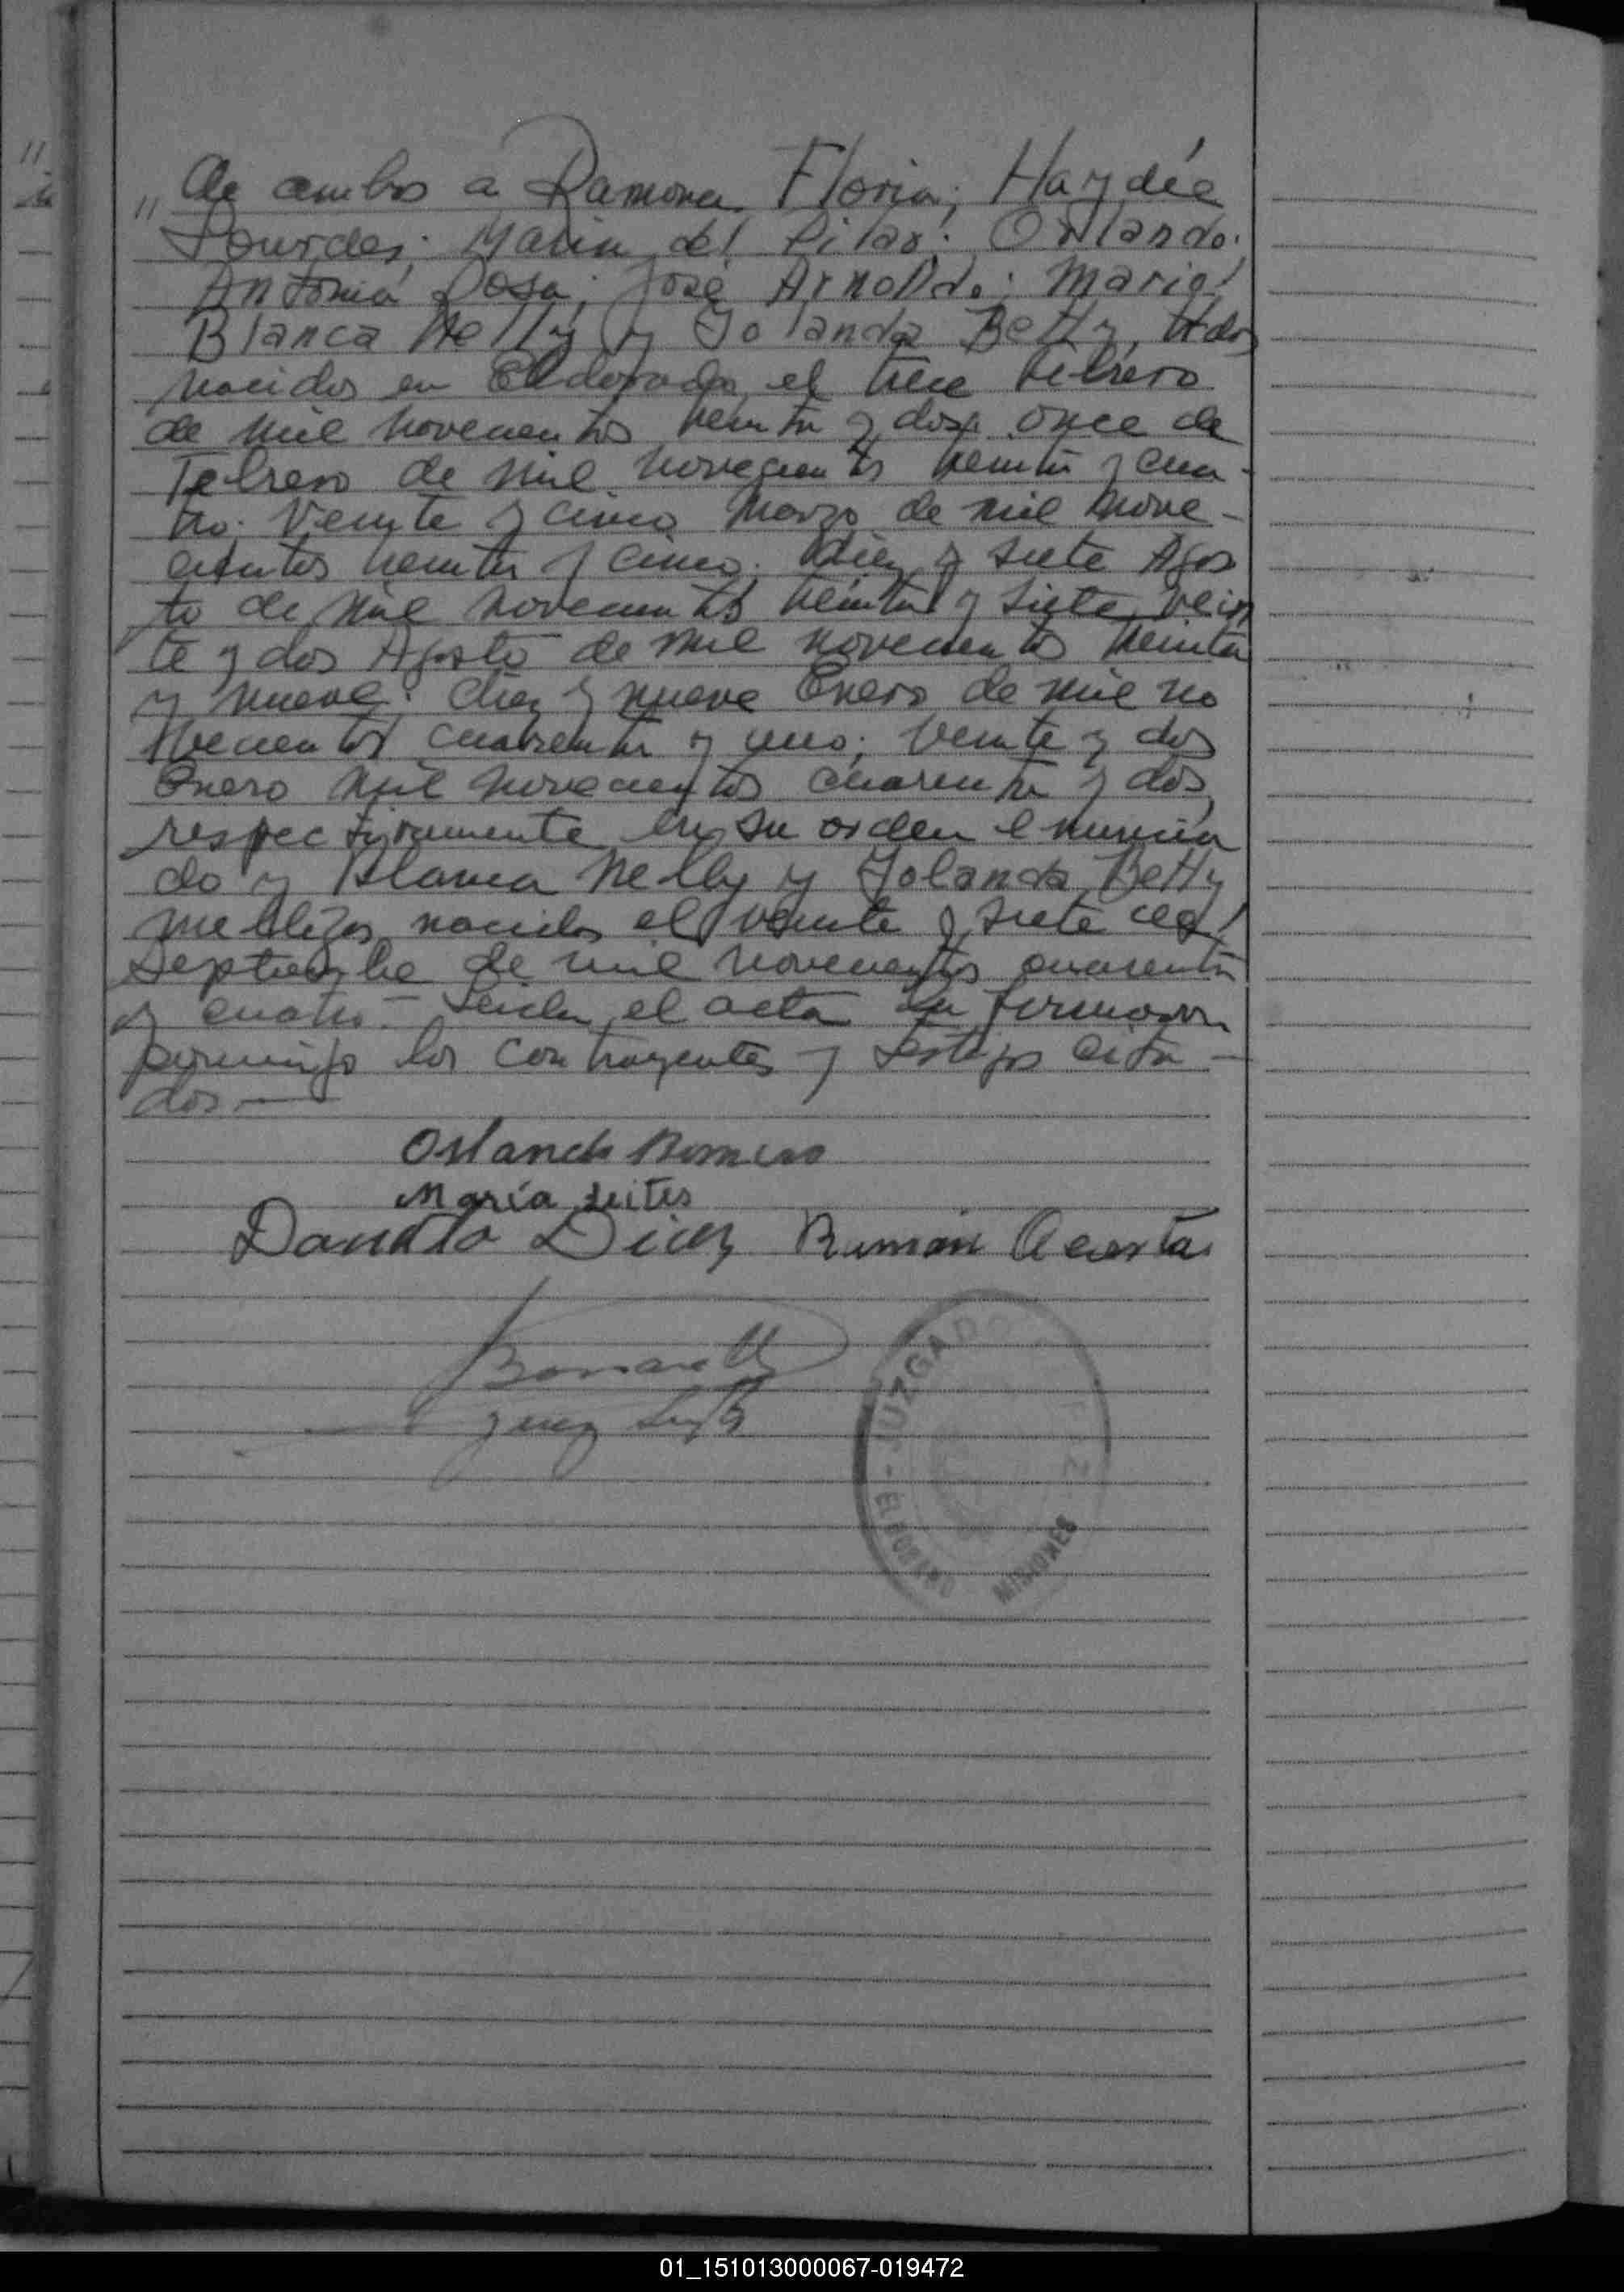 11
" de ambos a Ramona Floria; Haydée
Lourdes; María del Pilar; Orlando;
Antonia Rosa; José Arnoldo; Mario;
Blanca Nelly y Yolanda Betty, tdos
nacidos en Eldorado el trece Febrero
de mil novecientos treinta y dos; once de
Febrero de mil novecientos treinta y cua-
tro; Veinte y cinco Marzo de mil nove-
cientos treinta y cinco; diez y siete Agos
to de mil novecientos treinta y siete, vein
te y dos Agosto de mil novecientos treinta
y nueve; diez y nueve Enero de mil no
vecientos cuarenta y uno; veinte y dos
Enero mil novecientos cuarenta y dos,
respectivamente en su orden enuncia
do y Blanca Nelly y Yolanda Betty
mellizas nacidas el veinte y siete de
Septiembre de mil novecientos cuarenta
y cuatro.- Leida el acta la firmaron
conmigo los contrayentes y testigos cita-
dos—
Orlando Romero
María Leites
Donato Diez Ramón Acosta
Juez Supte
JUZGADO DE PAZ
- ELDORADO MISIONES
01_151013000067-019472